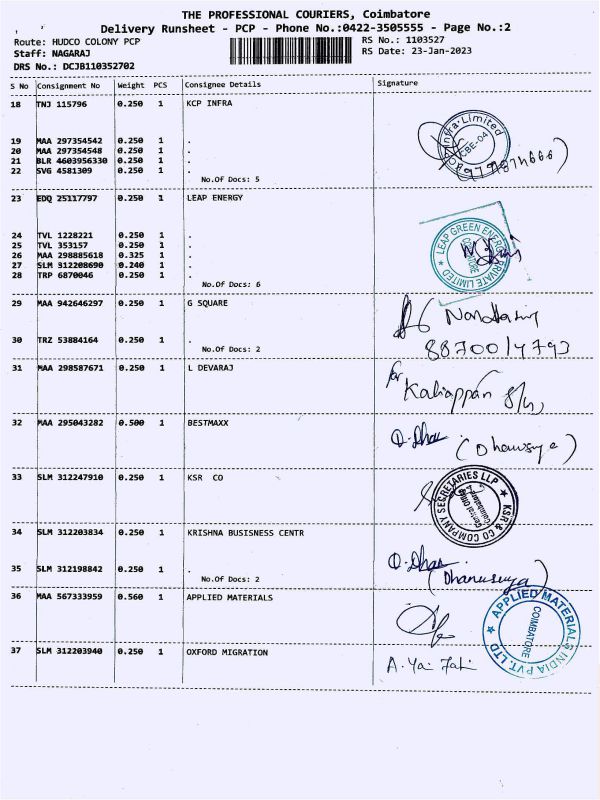 THE PROFESSIONAL COURIERS, Coimbatore
Delivery Runsheet - PCP - Phone No.:0422-3505555 - Page No.:2
Route: HUDCO COLONY PCP RS No.: 1103527
Staff: NAGARAJ RS Date: 23-Jan-2023
DRS No.: DCJB110352702
S No Consignment No Weight PCS Consignee Details Signature
18 TNJ 115796 0.250 1 KCP INFRA
Infra Limited
CBE-04
19 MAA 297354542 0.250 1 .
20 MAA 297354548 0.250 1 .
21 BLR 4603956330 0.250 1 .
22 SVG 4581309 0.250 1 .
No.Of Docs: 5
23 EDQ 25117797 0.250 1 LEAP ENERGY
LEAP GREEN ENERGY PRIVATE LIMITED
COIMBATORE
24 TVL 1228221 0.250 1 .
25 TVL 353157 0.250 1 .
26 MAA 298885618 0.325 1 .
27 SLM 312208690 0.240 1 .
28 TRP 6870046 0.250 1 .
No.Of Docs: 6
29 MAA 942646297 0.250 1 G SQUARE
30 TRZ 53884164 0.250 1 .
88700 14793
No.Of Docs: 2
31 MAA 298587671 0.250 1 L DEVARAJ
for
Kaliappan
32 MAA 295043282 0.500 1 BESTMAXX
D. Dha (Dhanusuya)
33 SLM 312247910 0.250 1 KSR CO
KSR & CO COMPANY SECRETARIES LLP
Central Office
Coimbatore-4
34 SLM 312203834 0.250 1 KRISHNA BUSISNESS CENTR
35 SLM 312198842 0.250 1 .
D. Dha (Dhanusuya)
No.Of Docs: 2
36 MAA 567333959 0.560 1 APPLIED MATERIALS
APPLIED MATERIALS INDIA PVT. LTD
COIMBATORE
37 SLM 312203940 0.250 1 OXFORD MIGRATION